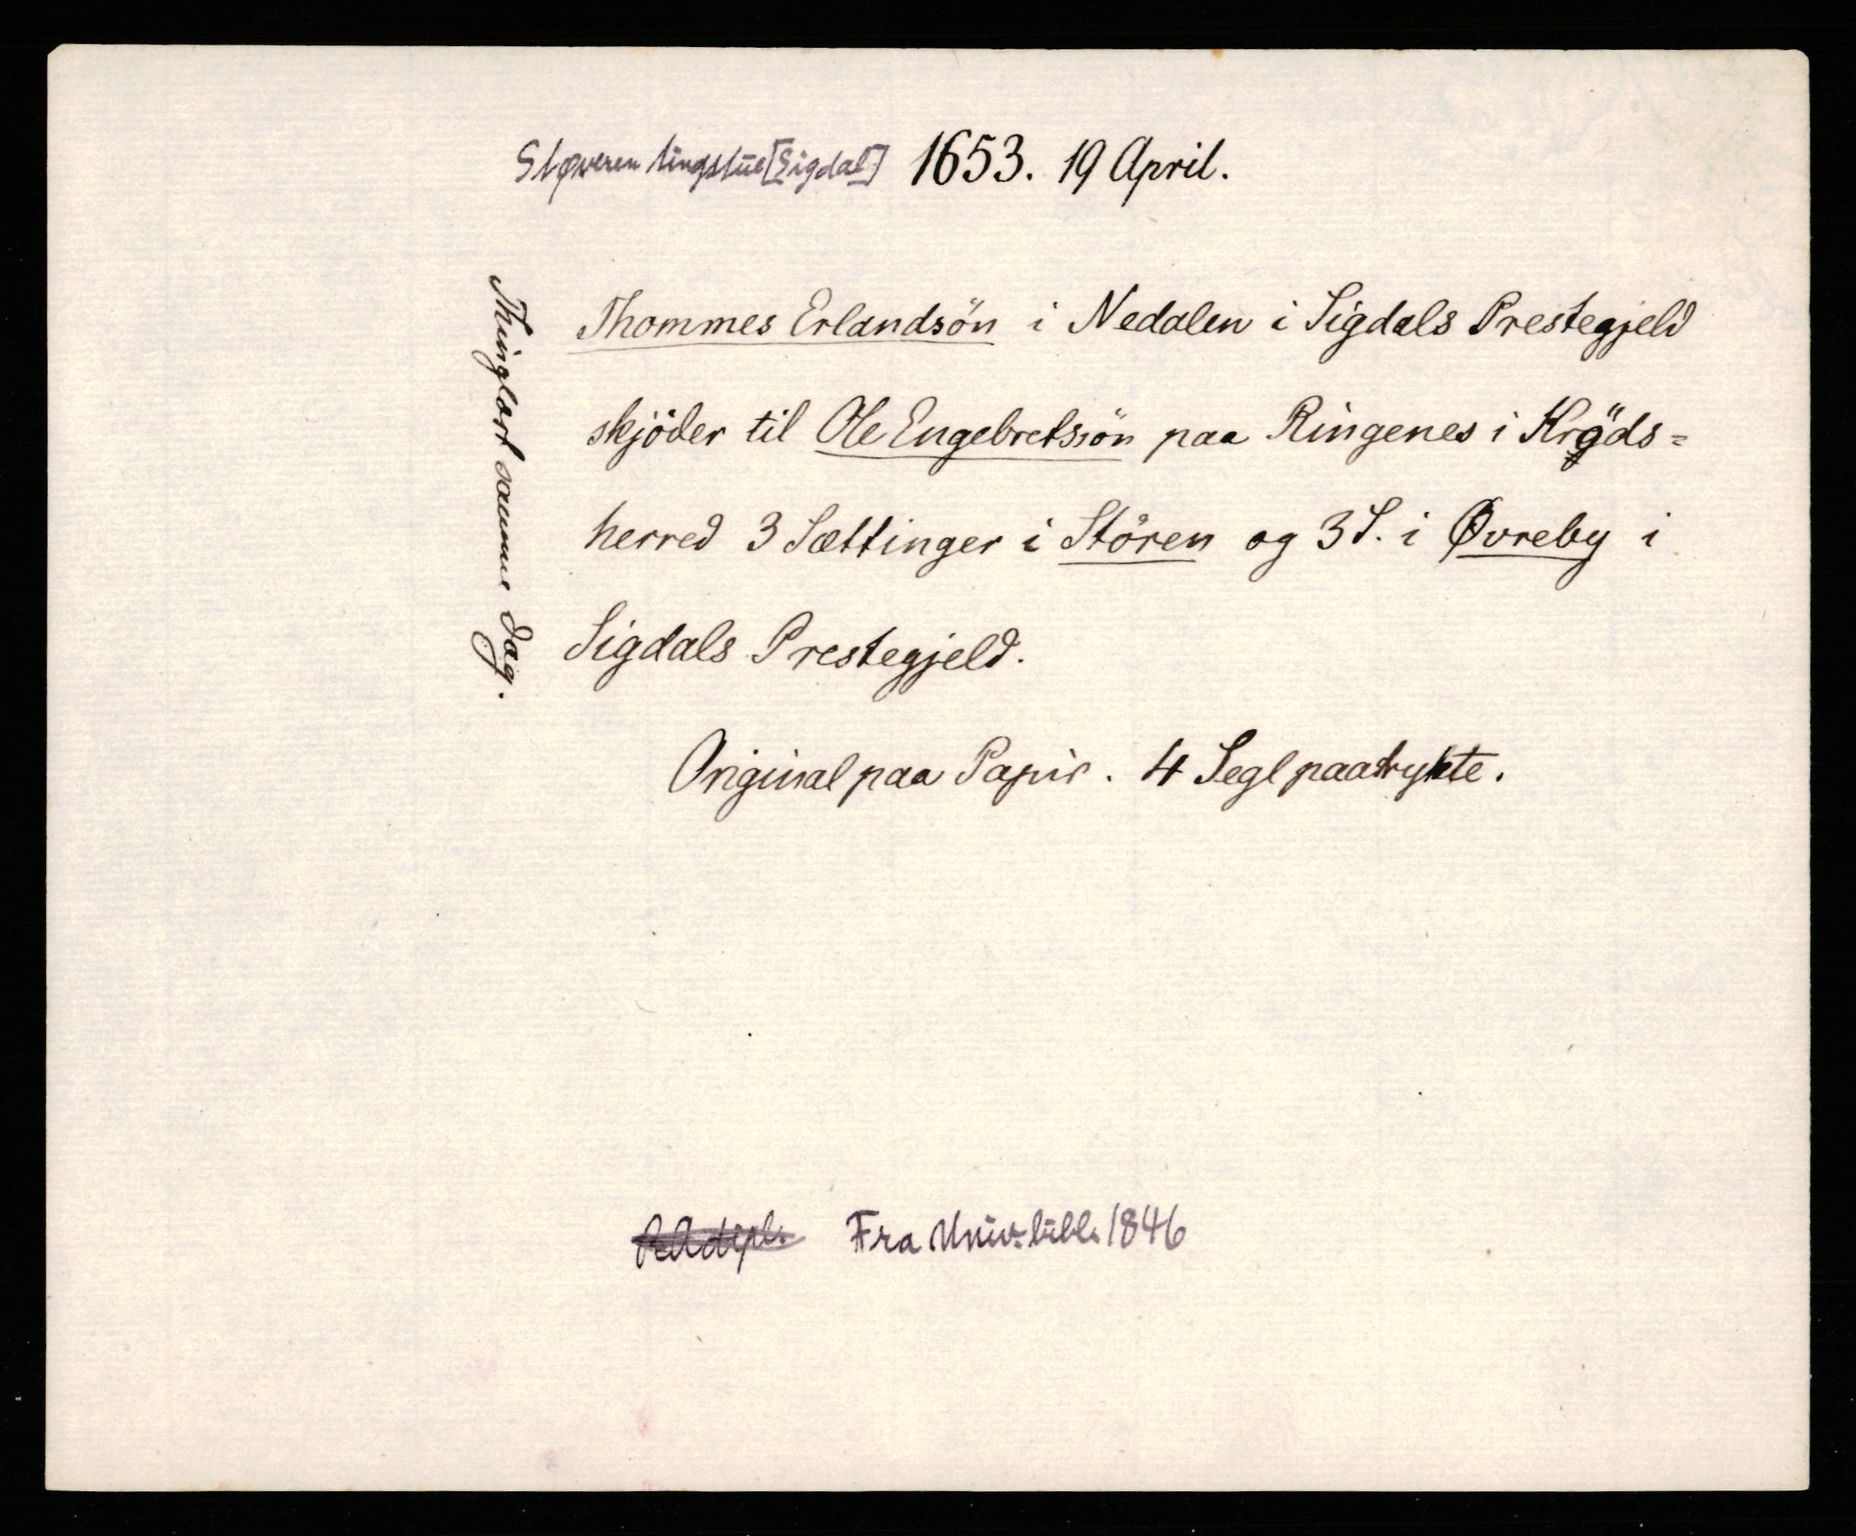 Støveren tingstue [Sigdal] 1653. 19 April.
Thinglæst samme Dag.
Thommes Erlandsön i Nedalen i Sigdals Prestegjeld
skjöder til Ole Engebretssön paa Ringenes i Kröds=
herred 3 Sættinger i Stören og 3 S. i Øvreby i
Sigdals Prestegjeld.
Original paa Papir. 4 Segl paatrykte.
RA dipl. Fra Univ. bibl. 1846